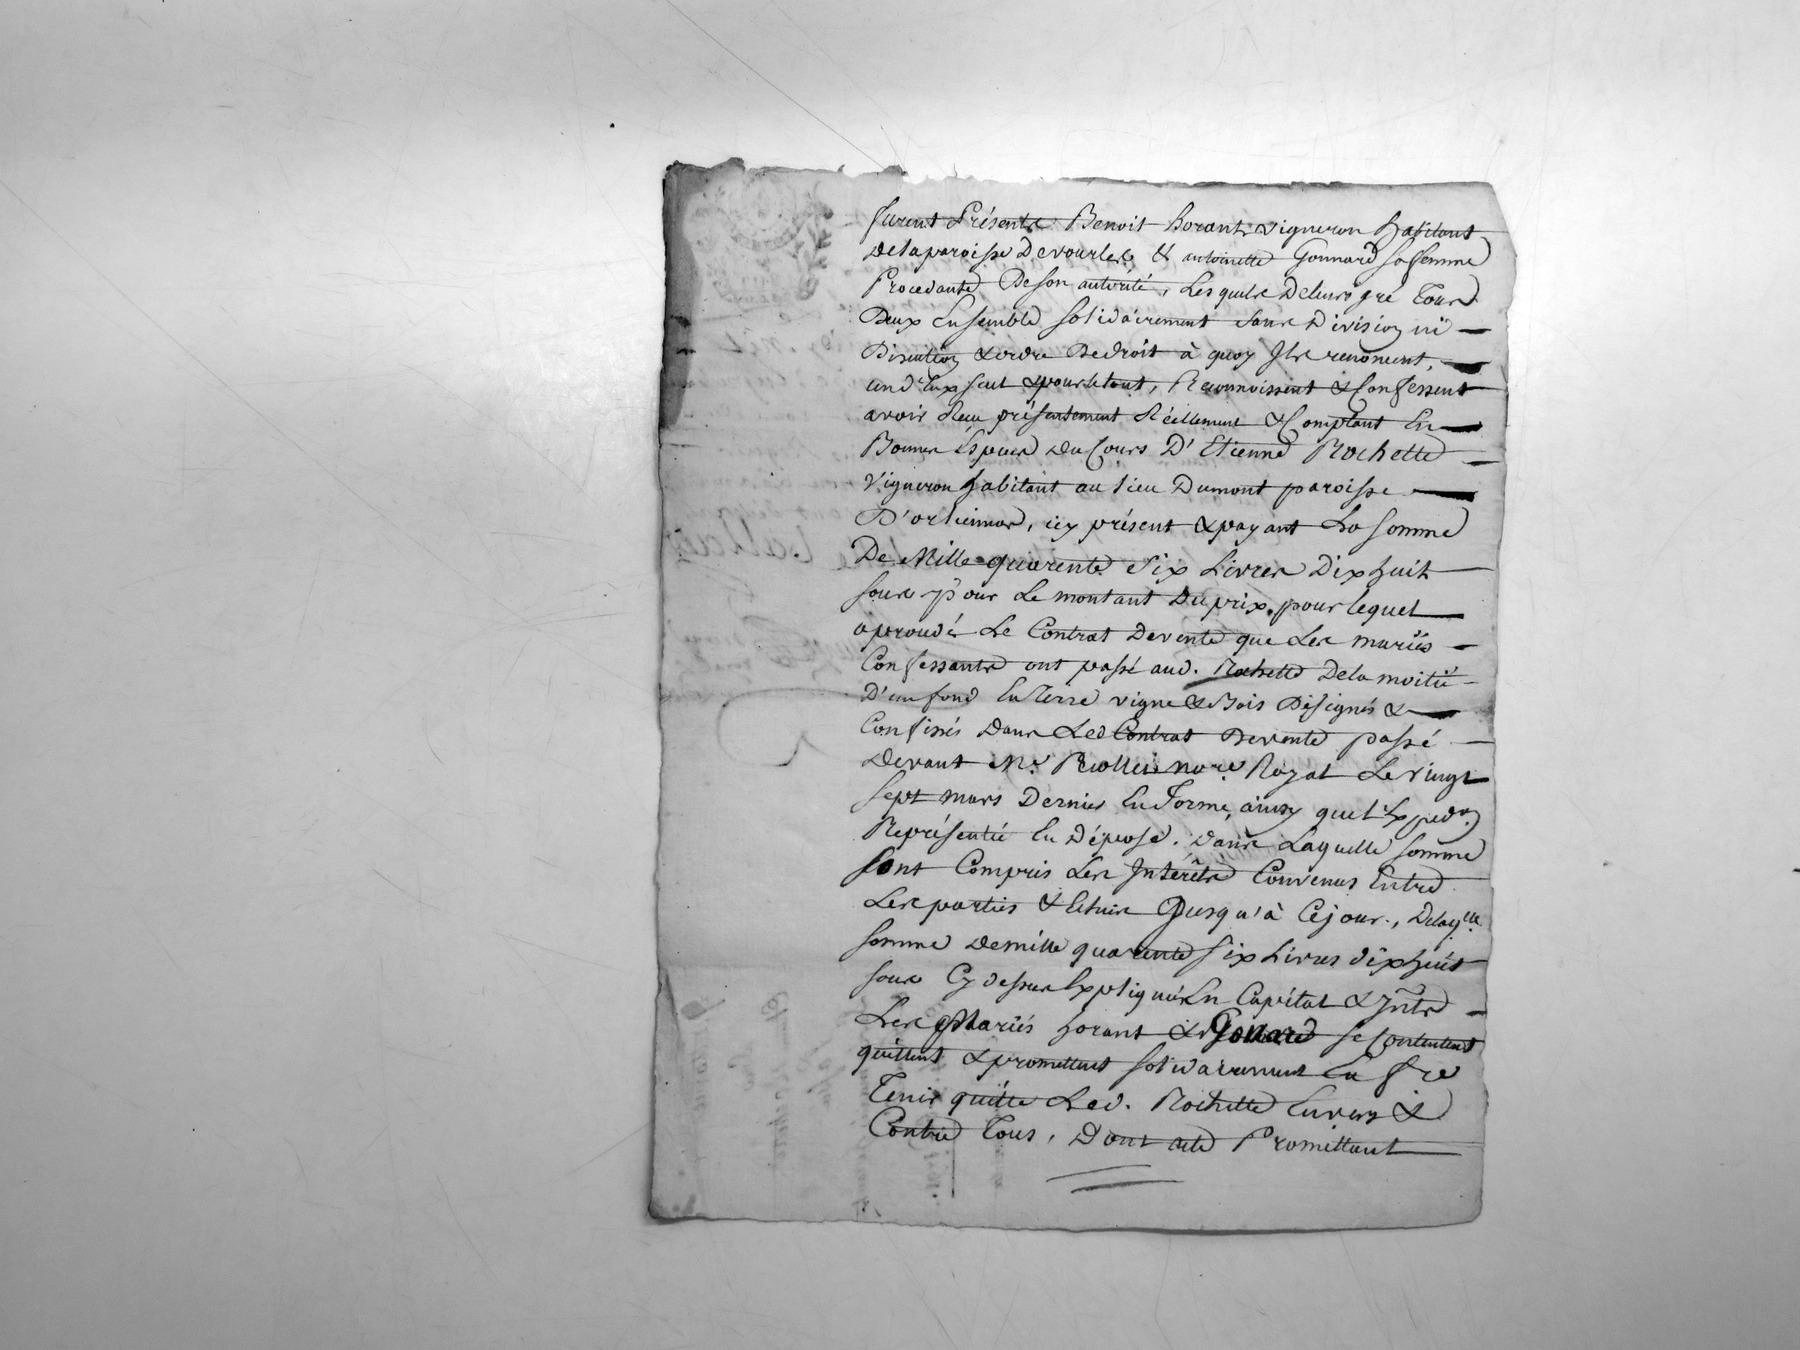 furent Présents Benoit horant vigneron habitant
de la paroisse de vourles & antoinette Gonnard sa femme
Procedante De son autorité, Lesquels De leurs gré Tous
Deux Ensemble solidairement sans Division ni
Discution & ordre De droit à quoy Ils renoncent,
un d'Eux seul & pour le tout, Reconnoissent & Confessent
avoir Reçu présentement Réellement & Comptant En
Bonnes Espèces du Cours D'Etienne Rochette
Vigneron habitant au lieu Dumont paroisse
D'orlienas, icy présent & payant La somme
De Mille quarente Six Livres Dixhuit
sous pour Le montant Du prix pour lequel
Le Contrat De vente que Les mariés
Confessants ont passé aud. Rochette De la moitié
D'un fond En Terre vigne & Bois Désignés &
Confinés Dans Led Contrat De vente passé
Devant Me. nore. Royal Le vingt
sept mars Dernier En Forme, ainsy que l'Expedon
Représentée En Dépose. Dans Laquelle somme
sont Compris Les Intérêts Convenus Entre
Les parties & Echuis Jusqu'à Ce jour., Delaqlle
somme De mille quarente six Livres dixhuit
sous Cy dessus Expliquée En Capital & Intts
Les Mariés horant & Gonard se Contentent
quittent & promettent solidairement En fre
Tenir quitte Led. Rochette Envers &
Contre Tous, Dont acte Promettant